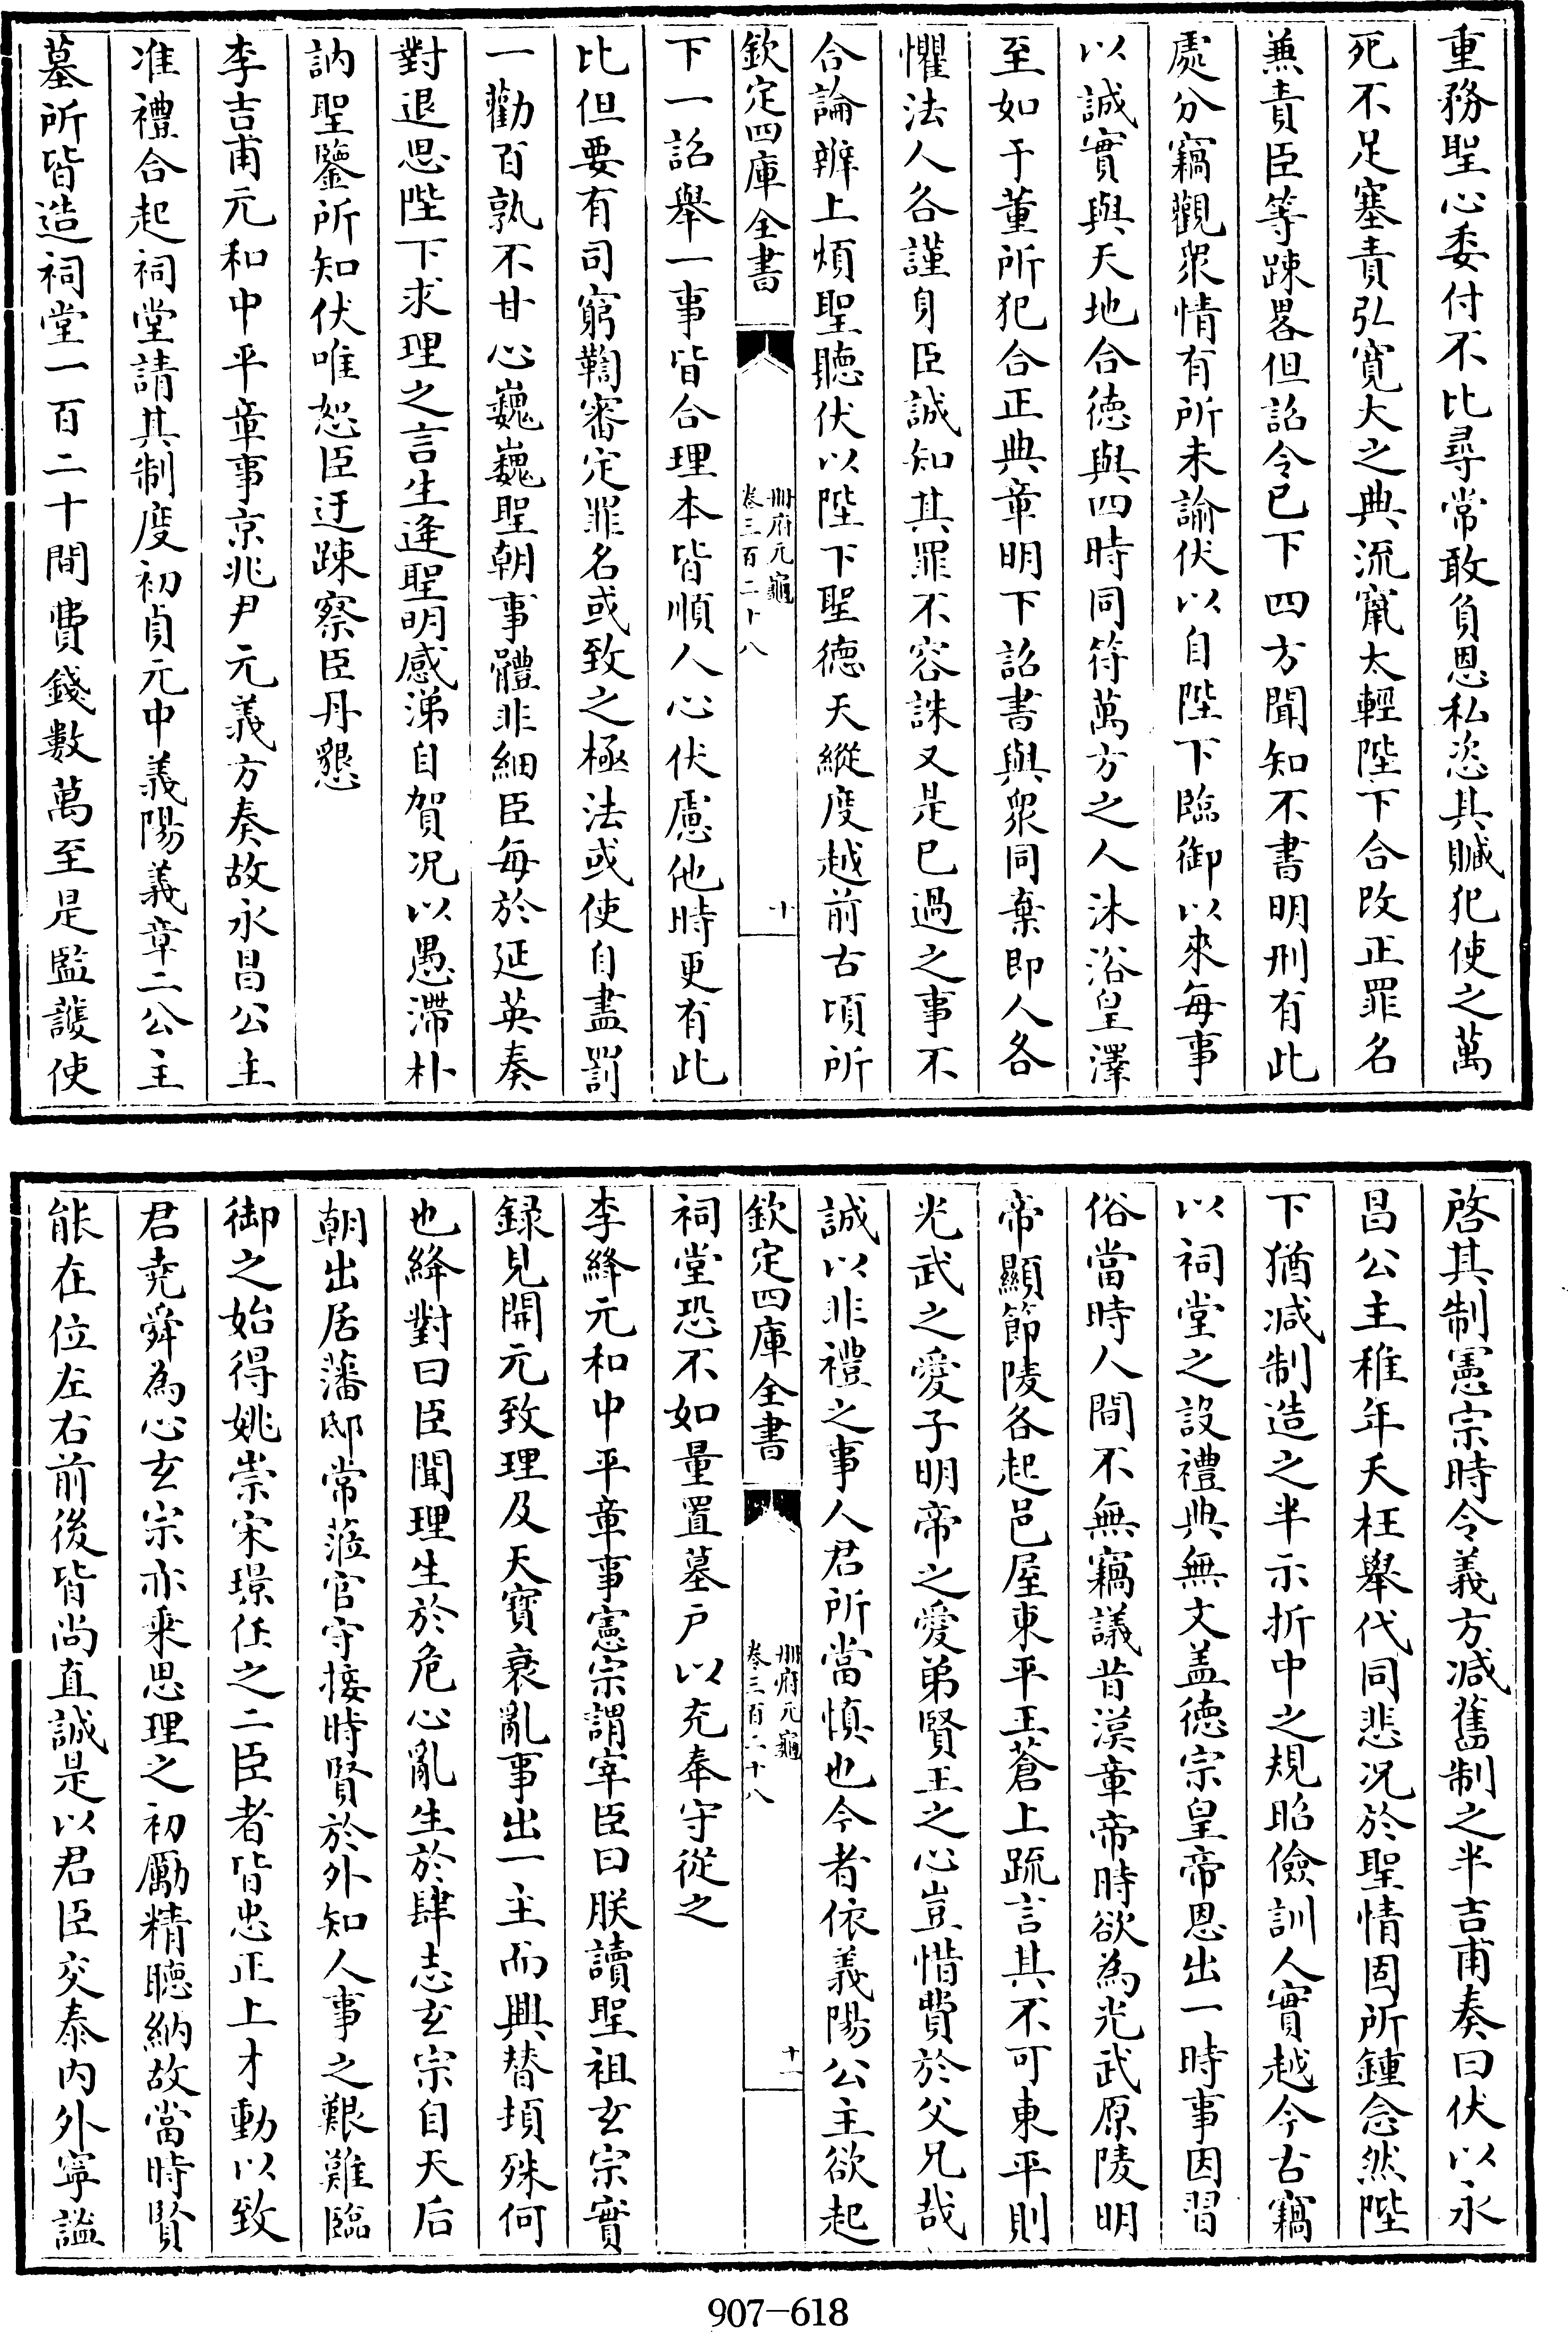 重務聖心委付不比尋常敢負恩私恣其贓犯使之萬
死不足塞責弘寬大之典流竄太輕陛下合改正罪名
兼責臣等踈畧但詔令已下四方聞知不書明刑有此
處分竊觀衆情有所未諭伏以自陛下臨御以來每事
以誠實與天地合徳與四時同符萬方之人沐浴皇澤
至如于董所犯合正典章明下詔書與衆同棄即人各
懼法人各謹身臣誠知其罪不容誅又是已過之事不
合論辨上煩聖聽伏以陛下聖德天縱度越前古頃所
欽定四庫全書
冊府元龜
卷三百二十八
十
下一詔舉一事皆合理本皆順人心伏慮他時更有此
比但要有司窮鞫審定罪名或致之極法或使自盡罰
一勸百孰不甘心巍巍聖朝事體非細臣每於延英奏
對退思陛下求理之言生逢聖明感涕自賀况以愚滯朴
訥聖鑒所知伏唯恕臣迂踈察臣丹懇
李吉甫元和中平章事京兆尹元義方奏故永昌公主
准禮合起祠堂請其制度初貞元中義陽義章二公主
墓所皆造祠堂一百二十間費錢數萬至是監護使
啓其制憲宗時令義方減舊制之半吉甫奏曰伏以永
昌公主稚年夭枉舉代同悲况於聖情固所鍾念然陛
下猶減制造之半示折中之規昭儉訓人實越今古竊
以祠堂之設禮典無文盖德宗皇帝恩出一時事因習
俗當時人間不無竊議昔漢章帝時欲為光武原陵明
帝顯節陵各起邑屋東平王蒼上疏言其不可東平則
光武之愛子明帝之愛弟賢王之心豈惜費於父兄哉
誠以非禮之事人君所當慎也今者依義陽公主欲起
欽定四庫全書
冊府元龜
卷三百二十八
十一
祠堂恐不如量置墓户以充奉守從之
李絳元和中平章事憲宗謂宰臣曰朕讀聖祖玄宗實
録見開元致理及天寳衰亂事出一主而興替頓殊何
也絳對曰臣聞理生於危心亂生於肆志玄宗自天后
朝出居藩邸常蒞官守接時賢於外知人事之艱難臨
御之始得姚崇宋璟任之二臣者皆忠正上才動以致
君堯舜為心玄宗亦乗思理之初勵精聽納故當時賢
能在位左右前後皆尚直誠是以君臣交泰内外寧謐
907-618